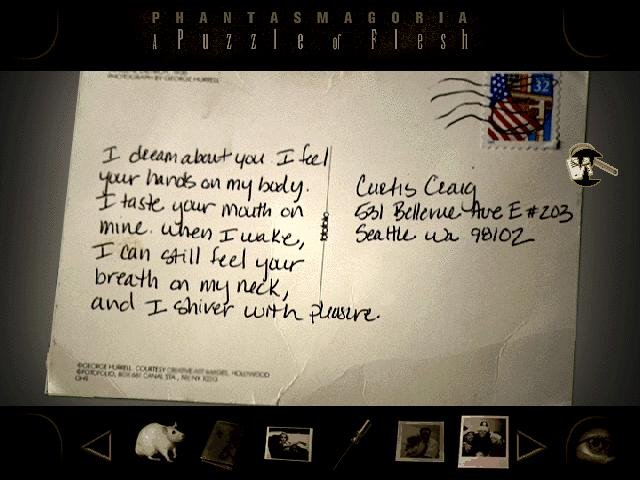 PHANTASMAGORIA
A Puzzle of Flesh
PHOTOGRAPH BY GEORGE HURRELL
32
I dream about you. I feel
your hands on my body.
I taste your mouth on
mine. When I wake,
I can still feel your
breath on my neck,
and I shiver with pleasure.
Curtis Craig
531 Bellevue Ave E #203
Seattle Wa 98102
©GEORGE HURRELL. COURTESY CREATIVE ART IMAGES, HOLLYWOOD
©FOTOFOLIO, BOX 661 CANAL STA., NY NY 10013